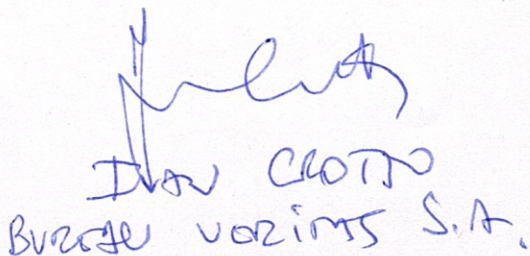 IVAN CROTTO
BUREAU VERITAS S.A.